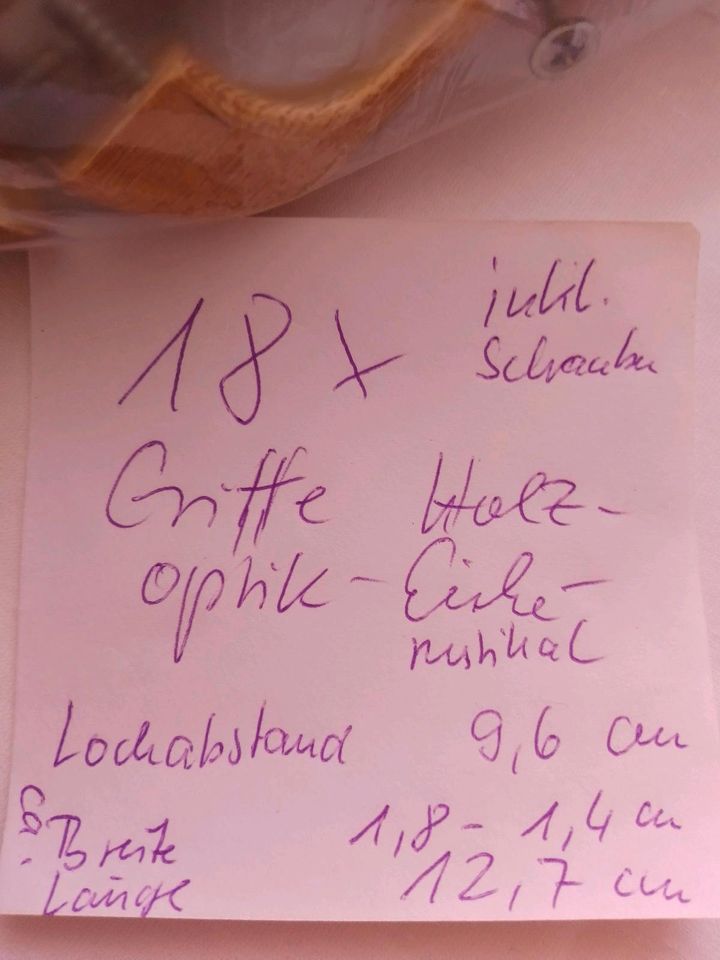 18 x inkl.
Schrauben
Griffe Holz-
optik - Eiche -
rustikal
Lochabstand 9,6 cm
Breite 1,8 - 1,4 cm
Länge 12,7 cm